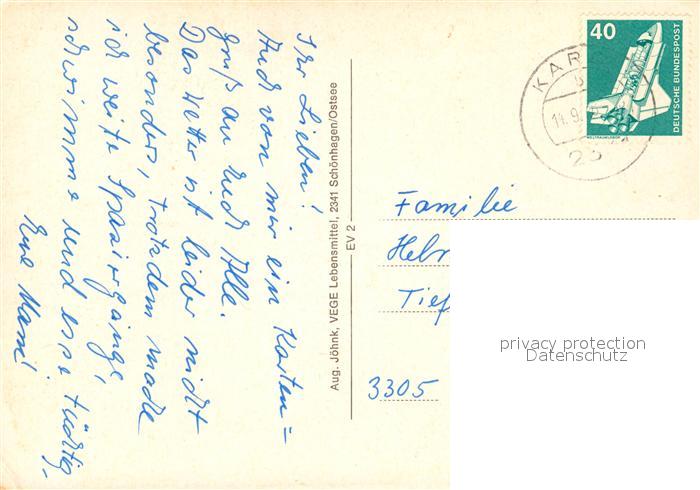 Ihr Lieben!
Auch von mir ein Karten=
gruß an Euch Alle.
Das Wetter ist leider nicht
besonders, trotzdem mache
ich weite Spaziergänge,
schwimme und esse tüchtig,
Eure
Aug. Jöhnk, VEGE Lebensmittel, 2341 Schönhagen/Ostsee
EV 2
40
DEUTSCHE BUNDESPOST
KAR
11.9.
23
Familie
Helm
Tief
3305
privacy protection
Datenschutz